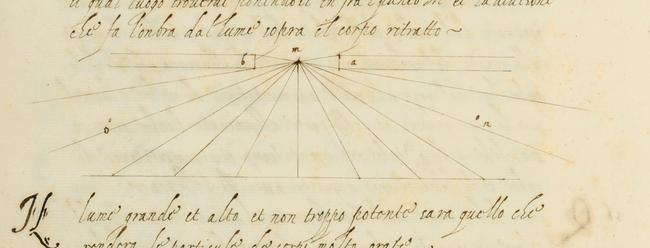 il qual luogo troverai ponendoti in fra
che fa l'onbra dal lume sopra il corpo ritratto ~
m
b a
o n
Il lume grande et alto et non troppo potente sara quello che
rendera le particule de corpi molto grate .